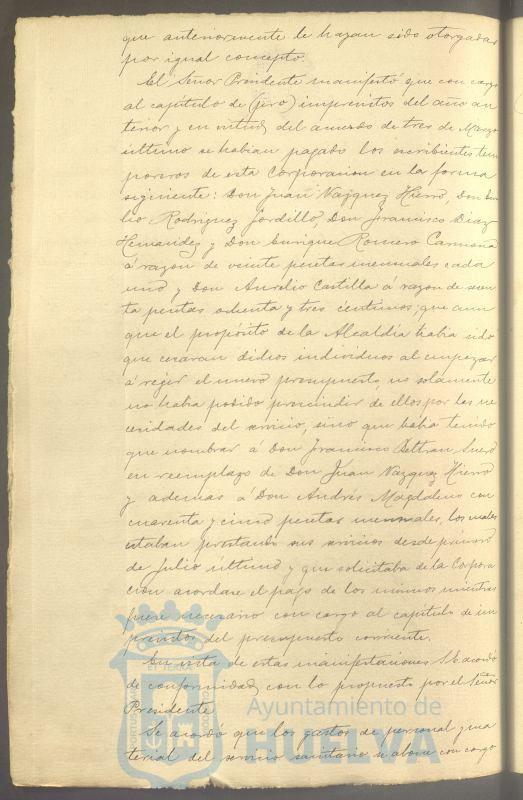 que anteriormente le hayan sido otorgadas
por igual concepto.
El Señor Presidente manifestó que con cargo
al capítulo de (jero) imprevistos del año an
terior y en virtud del acuerdo de tres de Marzo
último se habian pagado los escribientes tem
poreros de esta Corporacion en la forma
siguiente: Don Juan Vazquez Hierro, Don Eu
lio Rodriguez Jordillo, Don Francisco Diaz
Hernandez y Don Enrique Romero Carmona
á razon de veinte pesetas mensuales cada
uno y Don Aurelio Castilla á razon de seten
ta pesetas ochenta y tres céntimos; que aun
que el propósito de la Alcaldía habia sido
que cesaran dichos individuos al empezar
á regir el nuevo presupuesto, no solamente
no habia podido prescindir de ellos por las ne
cesidades del servicio, sino que habia tenido
que nombrar á Don Francisco Beltran Suero
en reemplazo de Don Juan Vazquez Hierro
y ademas á Don Andrés Magdaleno con
cuarenta y cinco pesetas mensuales, los cuales
estaban prestando sus servicios desde primero
de Julio último y que solicitaba de la Corpora
cion acordase el pago de los mismos mientras
fuese necesario con cargo al capítulo de im
previstos del presupuesto corriente.
En vista de estas manifestaciones S.E. acordó
de conformidad con lo propuesto por el Señor
Presidente
Se acordó que los gastos de personal y ma
terial del servicio sanitario se abone con cargo
Ayuntamiento de
HUELVA